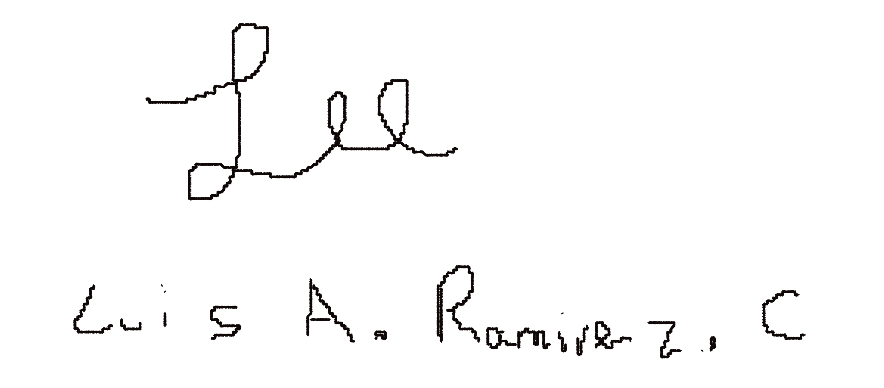 Lee
Luis A. Ramirez. C